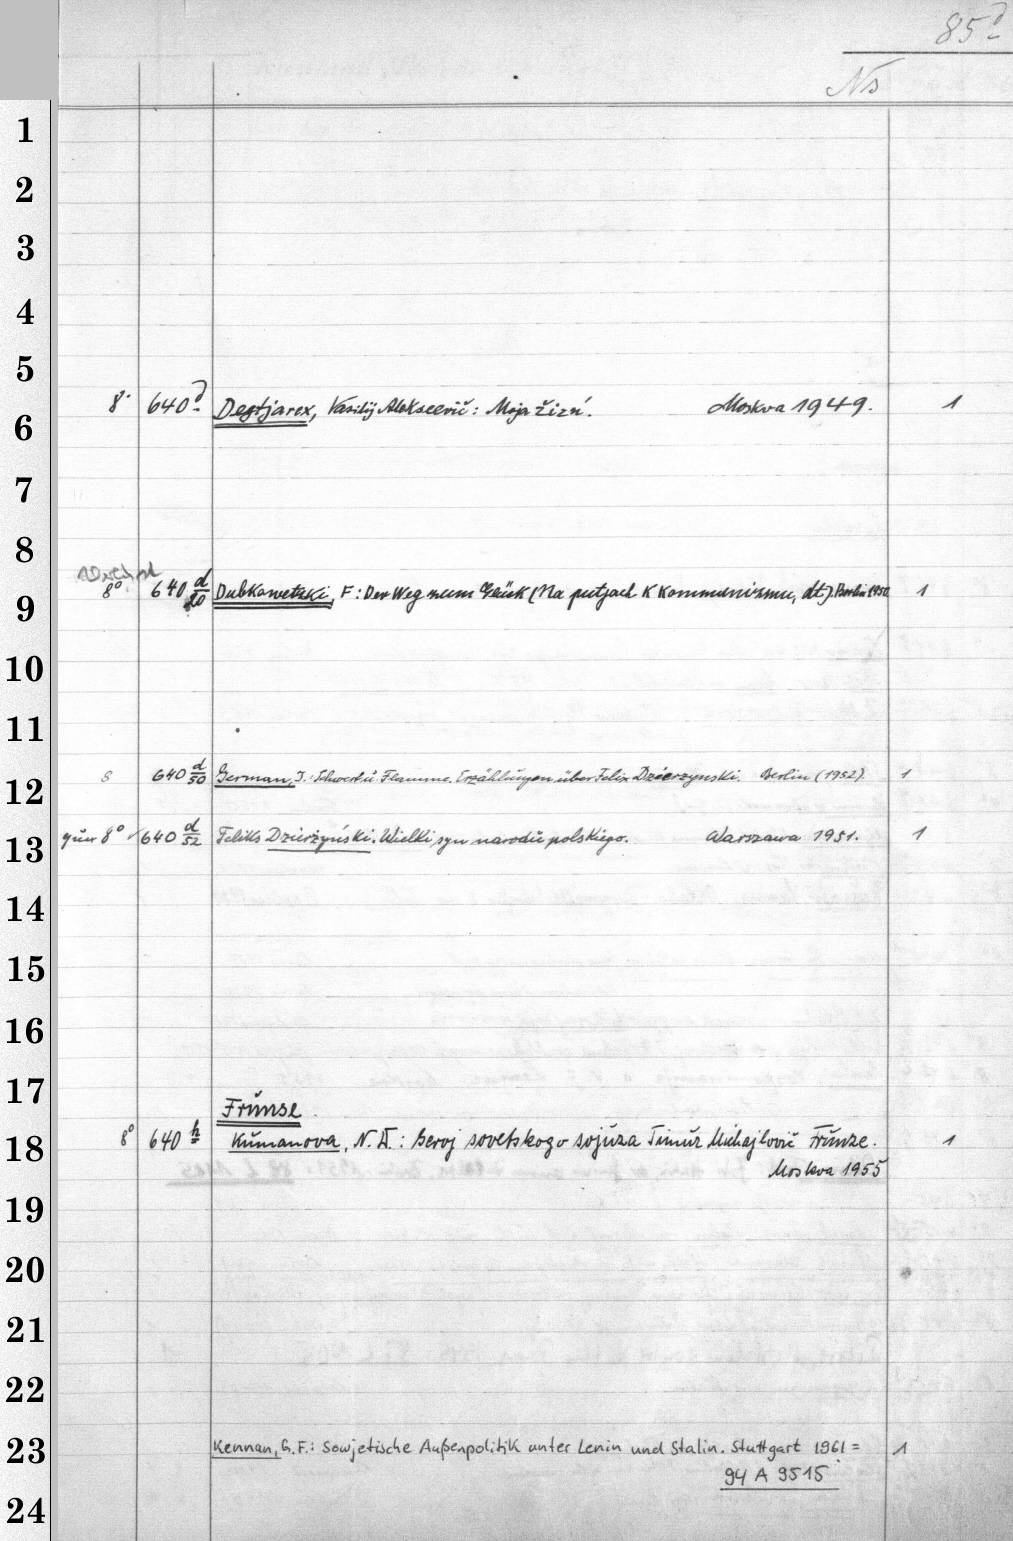 85d
Ns
1
2
3
4
5
8° 640d Degtjarex, Vasilij Alekseevič: Moja žizń. Moskva 1949. 1
6
7
8
8° 640 d/20 Dubkowetzki, F: Der Weg zum Glück (Na putjach k Kommunizmu, dt.). Berlin 1950 1
9
10
11
8 640 d/50 German, J.: Schwert ü Flamme. Erzählüngen über Felix Dzierzynski. Berlin (1952). 1
12
8° 640 d/52 Feliks Dzierżyński. Wielki syn narodü polskiego. Warszawa 1951. 1
13
14
15
16
17
Frŭnse
8° 640 h Kŭmanova, N. A.: Geroj sovetskogo sojŭza Timŭr Michajlovič Frŭnze. 1
18
Moskva 1955
19
20
21
22
23 Kennan, G.F.: Sowjetische Außenpolitik unter Lenin und Stalin. Stuttgart 1961 = 1
94 A 9515
24